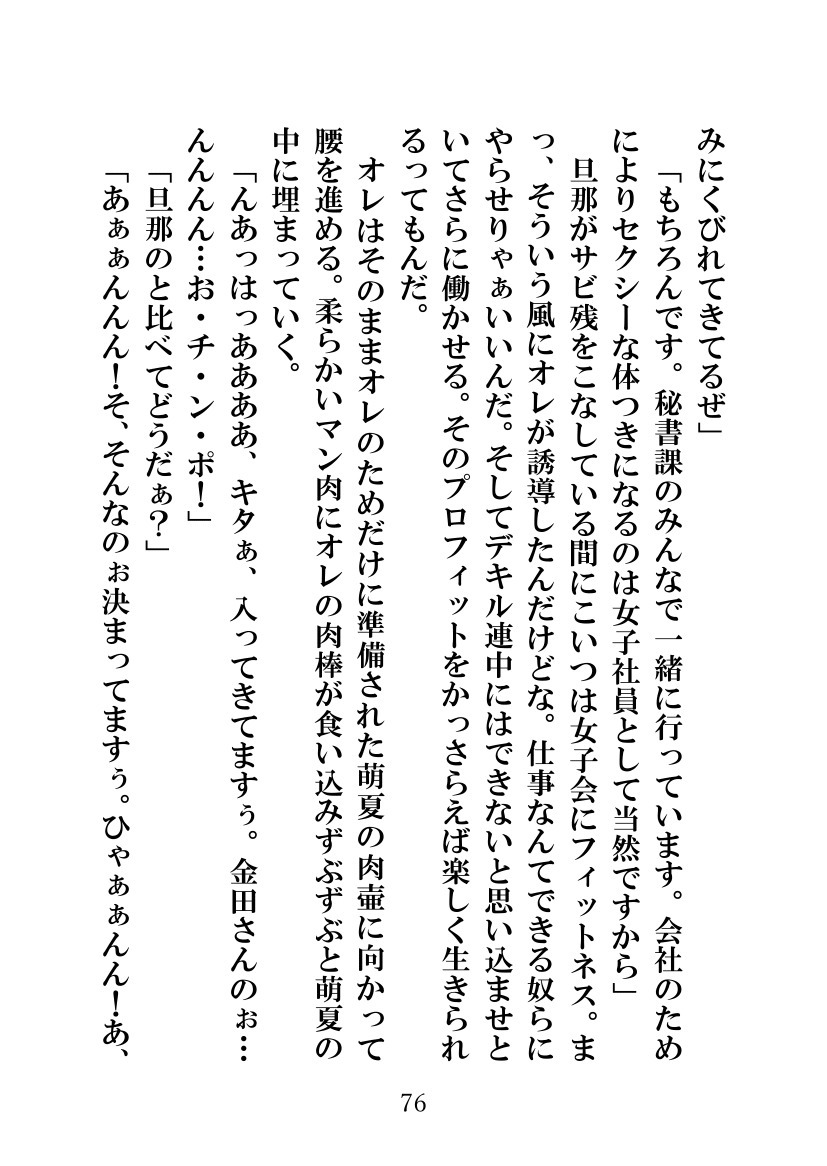 みにくびれてきてるぜ」
「もちろんです。秘書課のみんなで一緒に行っています。会社のため
によりセクシーな体つきになるのは女子社員として当然ですから」
旦那がサビ残をこなしている間にこいつは女子会にフィットネス。ま
っ、そういう風にオレが誘導したんだけどな。仕事なんてできる奴らに
やらせりゃぁいいんだ。そしてデキル連中にはできないと思い込ませと
いてさらに働かせる。そのプロフィットをかっさらえば楽しく生きられ
るってもんだ。
オレはそのままオレのためだけに準備された萌夏の肉壷に向かって
腰を進める。柔らかいマン肉にオレの肉棒が食い込みずぶずぶと萌夏の
中に埋まっていく。
「んあっはっああああ、キタぁ、入ってきてますぅ。金田さんのぉ…
んんんん…お・チ・ン・ポ！」
「旦那のと比べてどうだぁ？」
「あぁぁんんん！そ、そんなのぉ決まってますぅ。ひゃぁぁんん！あ、
76